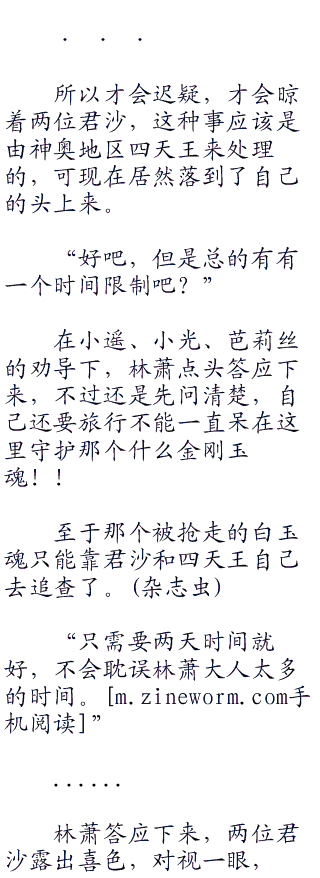 · · ·
所以才会迟疑，才会晾
着两位君沙，这种事应该是
由神奥地区四天王来处理
的，可现在居然落到了自己
的头上来。
“好吧，但是总的有有
一个时间限制吧？”
在小遥、小光、芭莉丝
的劝导下，林萧点头答应下
来，不过还是先问清楚，自
己还要旅行不能一直呆在这
里守护那个什么金刚玉
魂！！
至于那个被抢走的白玉
魂只能靠君沙和四天王自己
去追查了。(杂志虫)
“只需要两天时间就
好，不会耽误林萧大人太多
的时间。[m.zineworm.com手
机阅读]”
......
林萧答应下来，两位君
沙露出喜色，对视一眼，